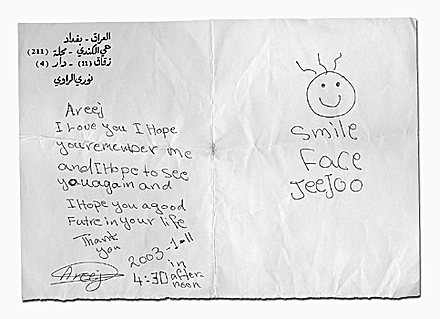 العراق - بغداد
حي الكندي - محلة (211)
زقاق (11) - دار (4)
نوري الراوي
Areej
I Love you I Hope
you remember me
and I Hope to see
you again and
I Hope you a good
Futre in your life
Thank
you
2003-1-11
in
4:30 after
noon
Areej
smile
Face
JeeJoo